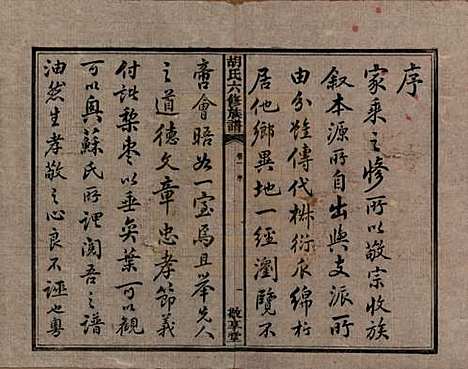 序
家乘之修所以敬宗收族
叙本源所自出與支派所
由分雖傳代椒衍瓜綿析
居他鄉異地一經瀏覽不
胡氏六修族譜
卷一
序
一
敬享堂
啻會晤如一室焉且舉先人
之道德文章忠孝節義
付諸梨棗以垂奕葉可以觀
可以興蘇氏所謂閱吾之譜
油然生孝敬之心良不誣也粵